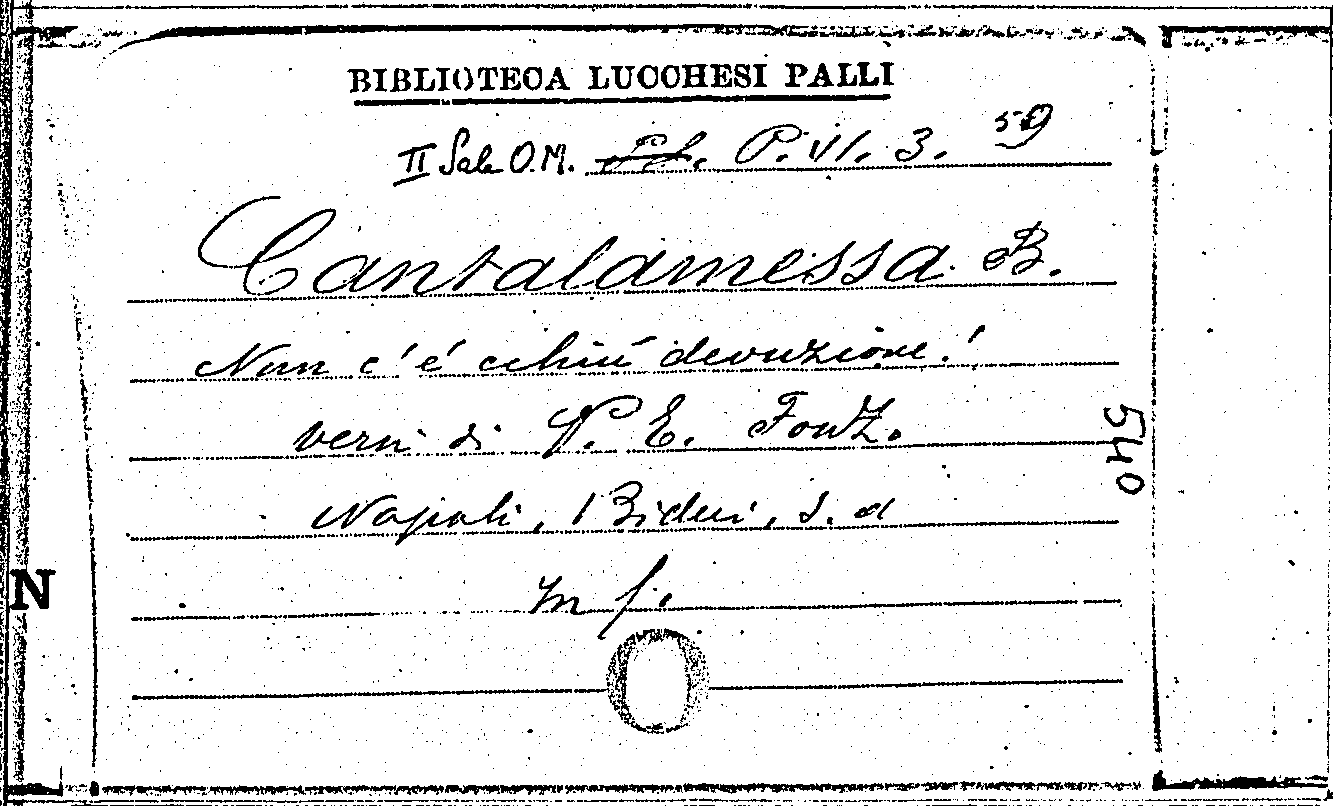 BIBLIOTECA LUCCHESI PALLI
II Sala O.M. P. VI. 3. 59
Cantalamessa B.
Nun c'é cchiú devuzione!
versi di P. E. Fonz.
Napoli, Bideri, s. d
in f.
540
N